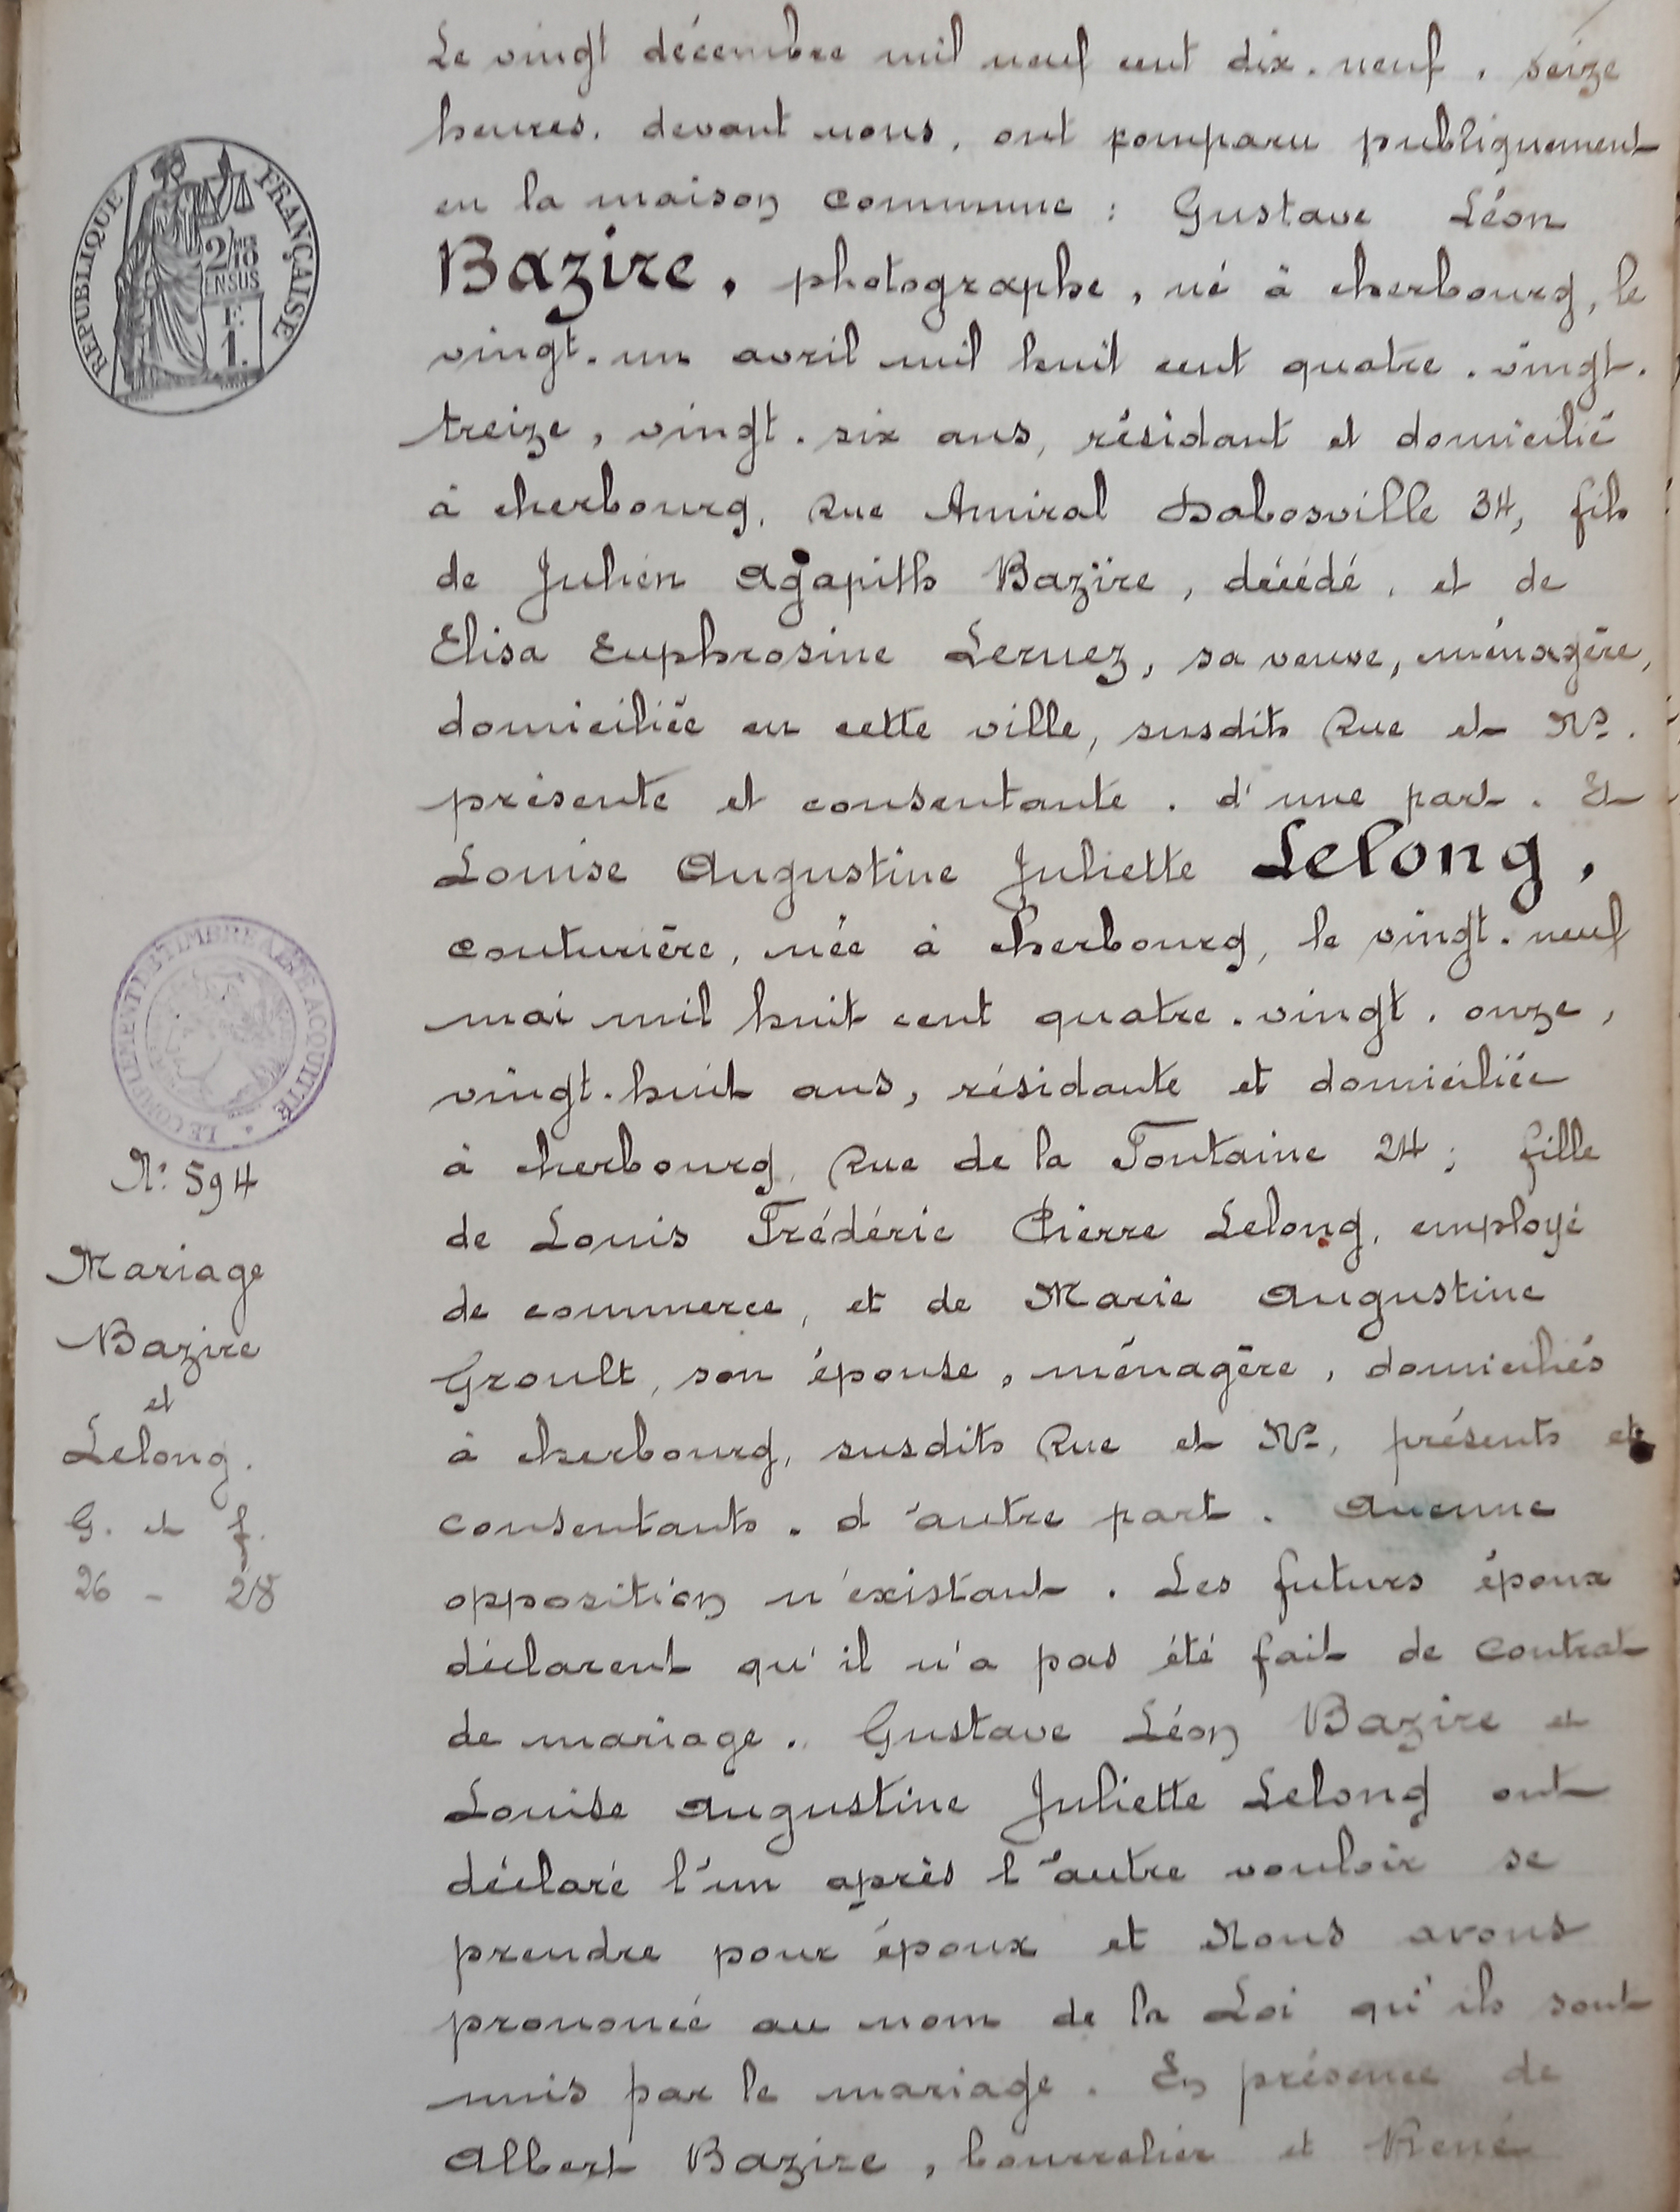 Le vingt décembre mil neuf cent dix-neuf, seize
heures, devant nous, ont comparu publiquement
en la maison commune : Gustave Léon
Bazire, photographe, né à Cherbourg, le
vingt-un avril mil huit cent quatre-vingt-
treize, vingt-six ans, résidant et domicilié
à Cherbourg, Rue Amiral Dabosville 34, fils
de Julien Agapith Bazire, décédé, et de
Elisa Euphrosine Leruez, sa veuve, ménagère,
domiciliée en cette ville, susdits Rue et No.
présente et consentante. d'une part. Et
Louise Augustine Juliette Lelong,
couturière, née à Cherbourg, le vingt-neuf
mai mil huit cent quatre-vingt-onze,
vingt-huit ans, résidante et domiciliée
à Cherbourg, Rue de la Fontaine 24; fille
de Louis Frédéric Pierre Lelong, employé
de commerce, et de Marie Augustine
Groult, son épouse, ménagère, domiciliés
à Cherbourg, susdits Rue et No, présents et
consentants. d'autre part. Aucune
opposition n'existant. Les futurs époux
déclarent qu'il n'a pas été fait de contrat
de mariage. Gustave Léon Bazire et
Louise Augustine Juliette Lelong ont
déclaré l'un après l'autre vouloir se
prendre pour époux et Nous avons
prononcé au nom de la Loi qu'ils sont
unis par le mariage. En présence de
Albert Bazire, bourrelier et René
REPUBLIQUE FRANÇAISE
2/10
EN SUS
F.
1.
LE COMPLEMENT DE TIMBRE A ETE ACQUITTE
No 594
Mariage
Bazire
et
Lelong.
G. et f.
26 - 28